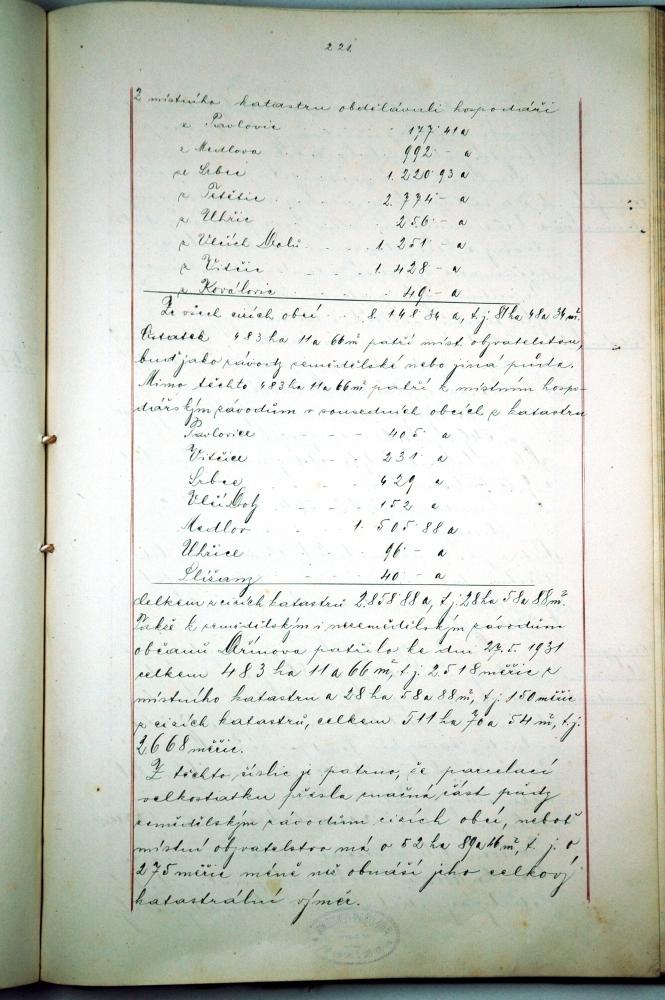 221.
Z místního katastru obdělávali hospodáři
z Pavlovic . . 177·41 a
z Medlova . . . 992·— a
ze Srbce . . . 1.220·93 a
z Těšetic . . . 2.774·— a
z Uhřic . . . 256·— a
z Vlčích Dolů . . . 1.251·— a
z Vitčic . . . 1.428·— a
z Kovalovic . . . 49·— a
Ze všech cizích obcí . . 8.148·34 a, t.j. 81 ha 48 a 34 m².
Ostatek 483 ha 11 a 66 m² patří míst. obyvatelstvu,
buď jako závody zemědělské nebo jiná půda.
Mimo těchto 483 ha 11 a 66 m² patří k místním hospo-
dářským závodům v sousedních obcích z katastru
Pavlovice - - - 405 a
Vitčice - - - 231 a
Srbce - - - 429 a
Vlčí Doly - - - 152 a
Medlov . . . 1.505·88 a
Uhřice - - - 96·— a
Slížany - - - 40·— a
Celkem z cizích katastrů 2.858·88 a, t.j. 28 ha 58 a 88 m².
Takže k zemědělským i nezemědělským závodům
občanů Dřínova patřilo ke dni 27.5.1931
celkem 483 ha 11 a 66 m², t.j. 2518 měřic z
místního katastru a 28 ha 58 a 88 m², t.j. 150 měřic
z cizích katastrů, celkem 511 ha 70 a 54 m², t.j.
2668 měřic.
Z těchto číslic je patrno, že parcelací
velkostatku přešla značná část půdy
zemědělským závodům cizích obcí, neboť
místní obyvatelstvo má o 52 ha 89 a 46 m², t. j. o
275 měřic méně než obnáší jeho celkový
katastrální výměr.